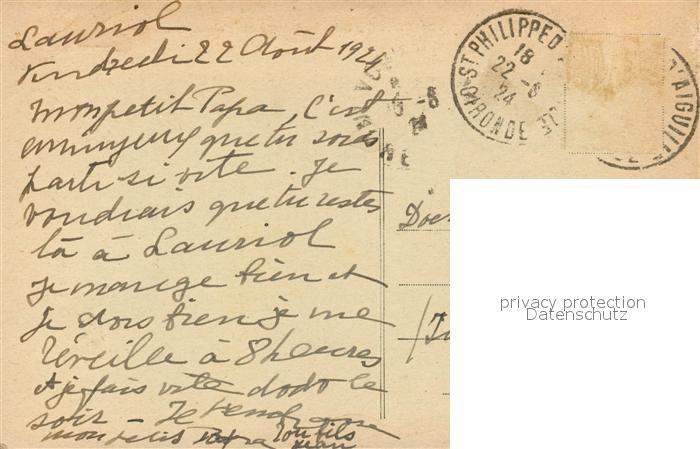 Lauriol
Vendredi 22 Août 1924
Mon petit Papa, C'est
ennuyeux que tu sois
parti si vite. Je
voudrais que tu restes
là à Lauriol
je mange bien et
je dors bien je me
réveille à 8 heures
et je fais vite dodo le
soir - Je t'embrasse
mon petit Papa Ton fils
Jean
ST PHILIPPE D'AIGUILLE
18
22 - 8
24
GIRONDE
privacy protection
Datenschutz